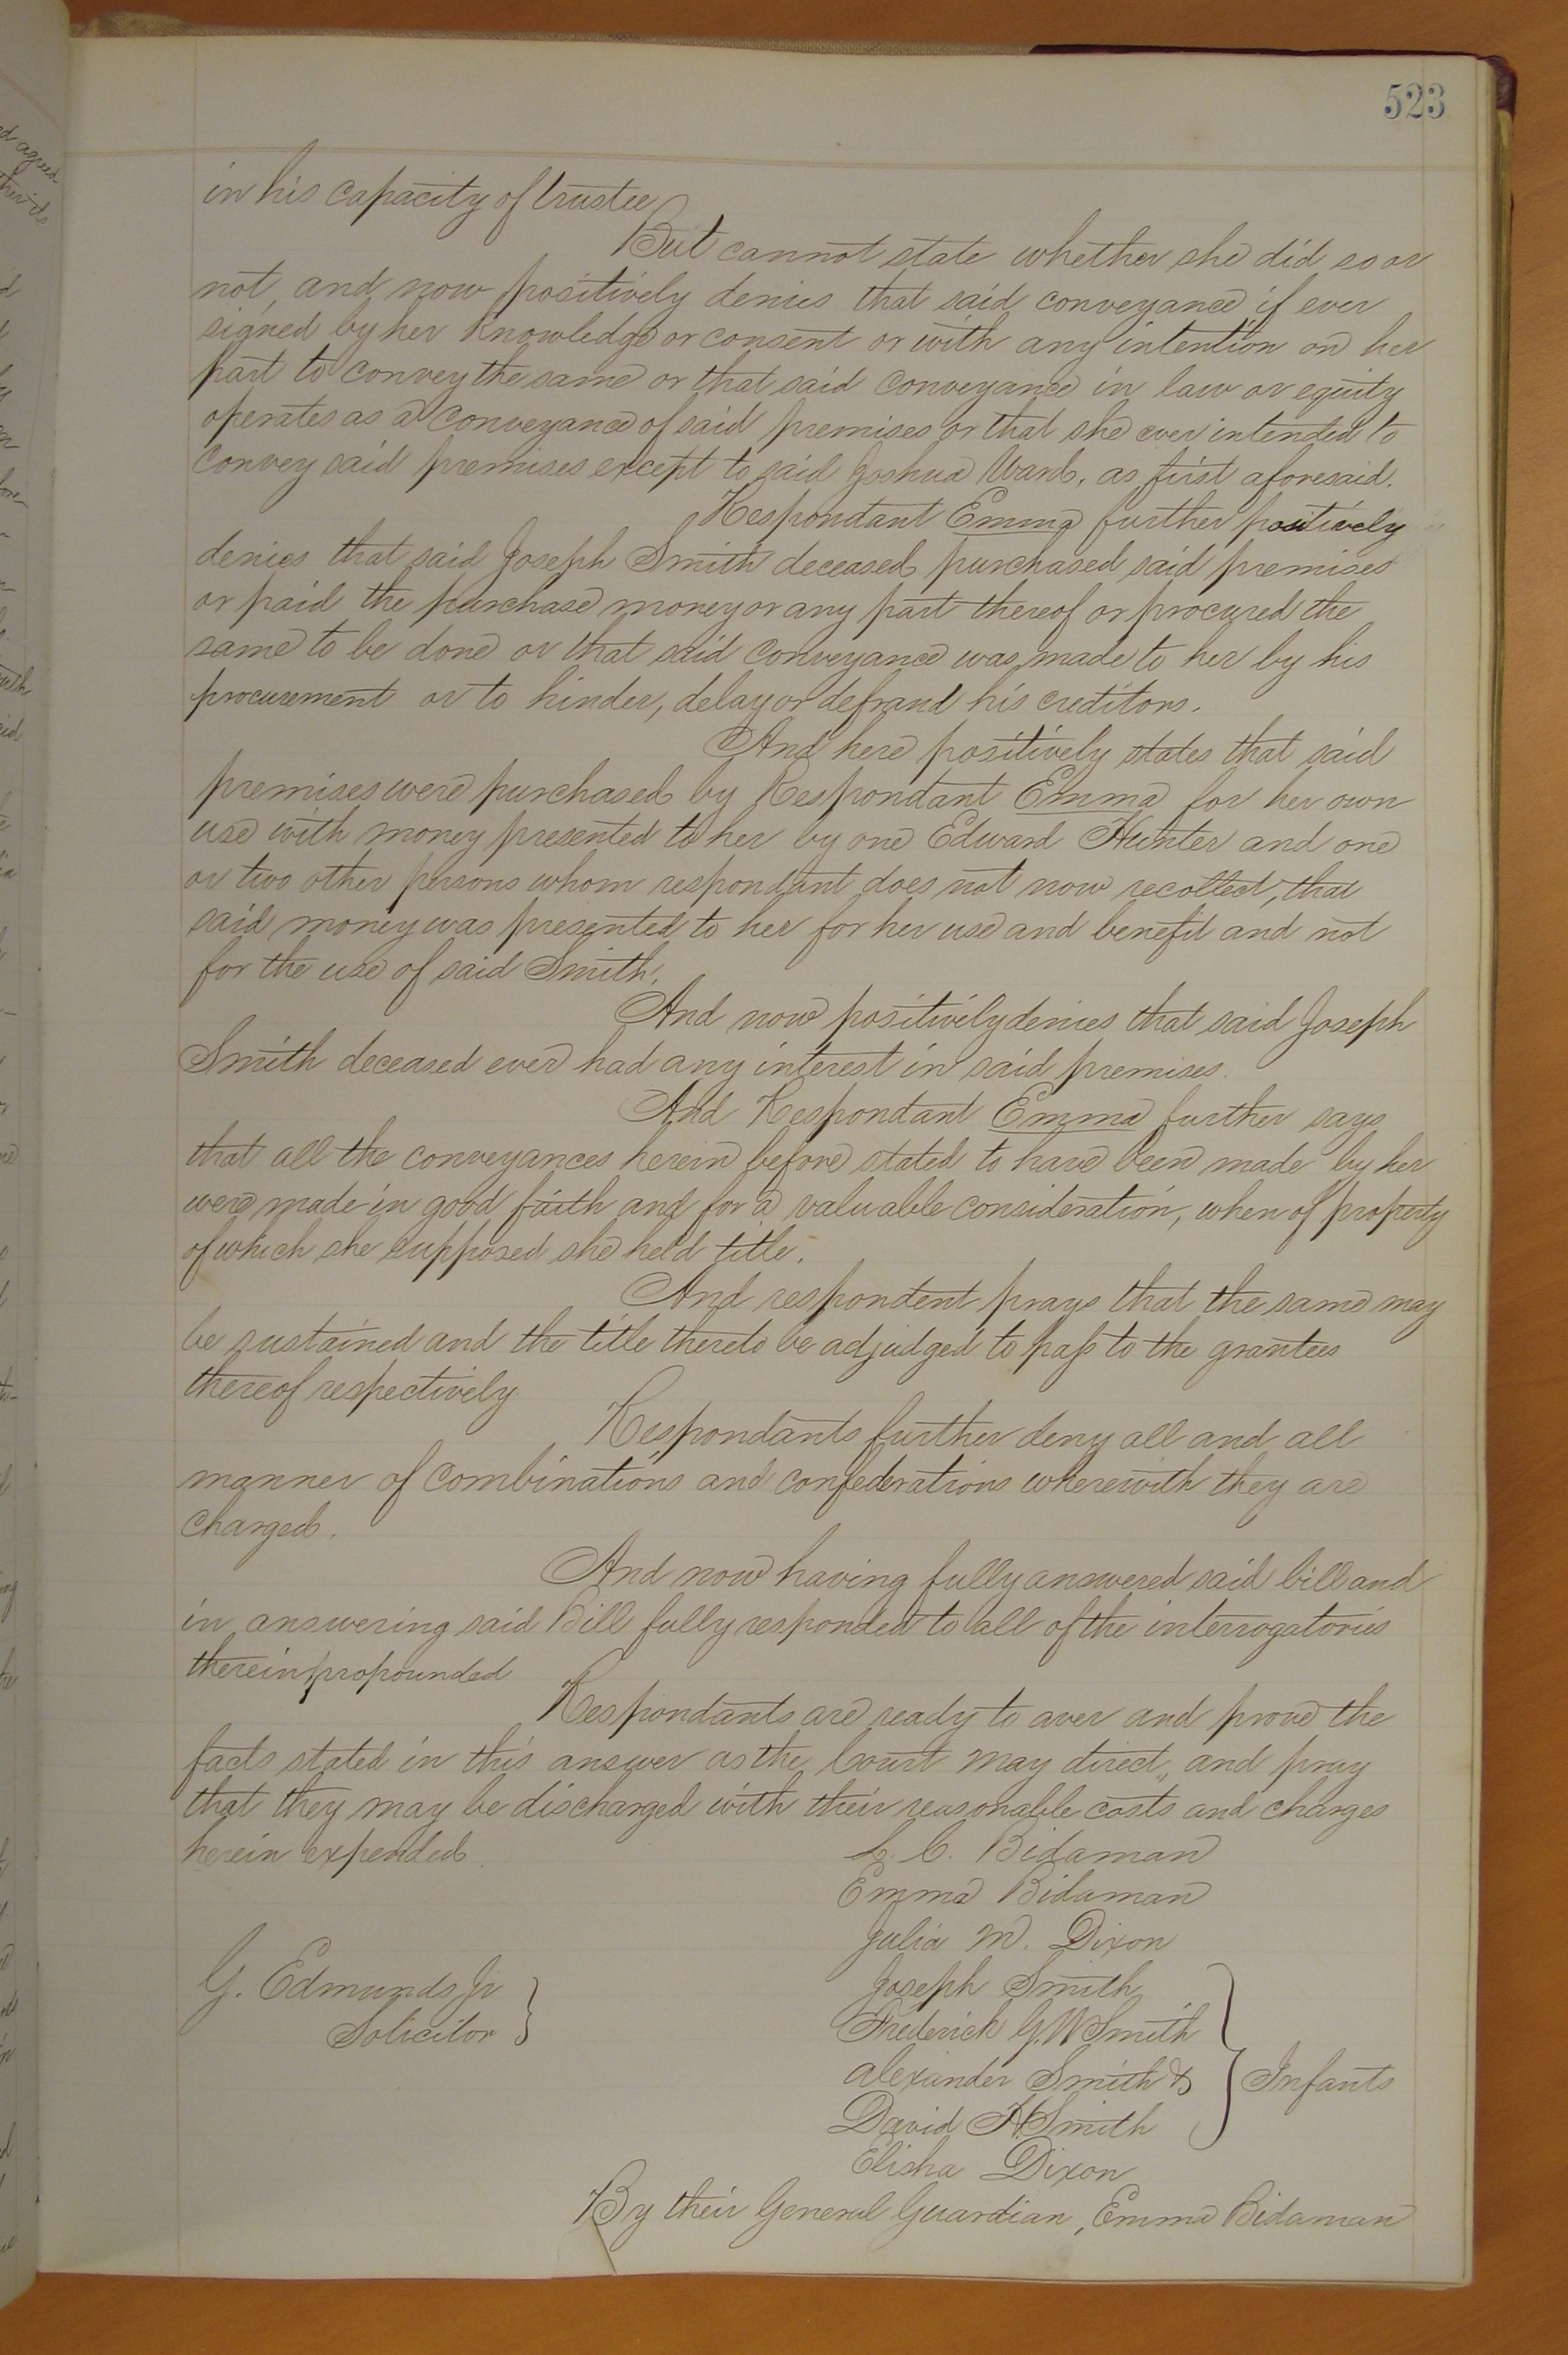 523
in his capacity of trustee
But cannot state whether she did so or
not, and now positively denies that said conveyance if ever
signed by her knowledge or consent or with any intention on her
part to convey the same or that said conveyance in law or equity
operates as a conveyance of said premises or that she ever intended to
convey said premises except to said Joshua Ward, as first aforesaid.
Respondant Emma further positively
denies that said Joseph Smith deceased purchased said premises
or paid the purchase money or any part thereof or procured the
same to be done or that said conveyance was made to her by his
procurement or to hinder, delay or defraud his creditors.
And here positively states that said
premises were purchased by Respondant Emma for her own
use with money presented to her by one Edward Hunter and one
or two other persons whom respondant does not now recollect, that
said money was presented to her for her use and benefit and not
for the use of said Smith.
And now positively denies that said Joseph
Smith deceased ever had any interest in said premises.
And Respondant Emma further says
that all the conveyances herein before stated to have been made by her
were made in good faith and for a valuable consideration, when of property
of which she supposed she held title.
And respondent prays that the same may
be sustained and the title thereto be adjudged to pass to the grantees
thereof respectively
Respondants further deny all and all
manner of combinations and confederations wherewith they are
charged.
And now having fully answered said bill and
in answering said Bill fully responded to all of the interrogatories
therein propounded
Respondants are ready to aver and prove the
facts stated in this answer as the Court may direct, and pray
that they may be discharged with their reasonable costs and charges
herein expended.
L. C. Bidaman
Emma Bidaman
Julia M. Dixon
G. Edmunds Jr
Solicitor
Joseph Smith
Frederick G. W Smith
Alexander Smith &
Infants
David H. Smith
Elisha Dixon
By their General Guardian, Emma Bidaman